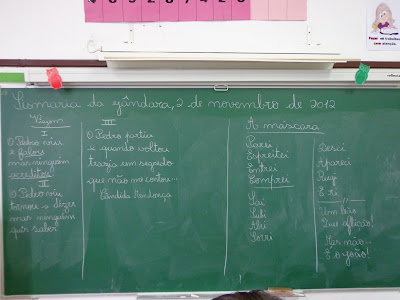 Sismaria da Gândara, 2 de novembro de 2012
Viagem
I
O Pedro viu
e falou
mas ninguém
acreditou
II
O Pedro viu
tornou a dizer
mas ninguém
quis saber
III
O Pedro partiu
e quando voltou
trazia um segredo
que não me contou...
Cândida Mendonça
A máscara
Parei
Espreitei
Entrei
Comprei
Saí
Subi
Abri
Sorri
Desci
Apareci
Rugi
E ri
Um leão
Que aflição!
Mas não...
É o João!